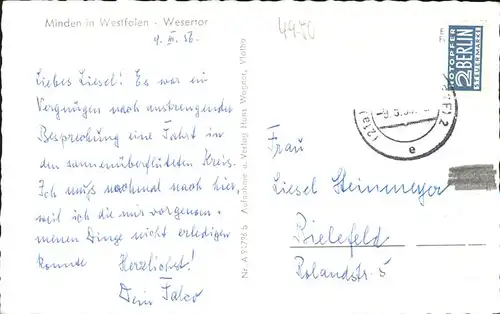 Minden in Westfalen - Wesertor
9. III. 56.
4950
Liebes Liesel! Es war ein
Vergnügen nach anstrengender
Besprechung eine Fahrt in
den sonnenüberfluteten Kreis.
Ich muß nochmal nach hier,
weil ich die mir vorgenom-
menen Dinge nicht erledigen
konnte Herzlichst!
Dein Falco
Nr. A 95/56 b Aufnahme u. Verlag Hans Wagner, Vlotho
NOTOPFER
2 BERLIN
STEUERMARKE
(21a)
e
Frau
Liesel Steinmeyer
Bielefeld
Rolandstr. 5